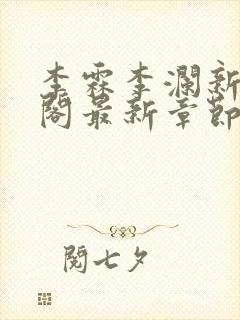 李霖李澜新
阁最新章節
閱七夕